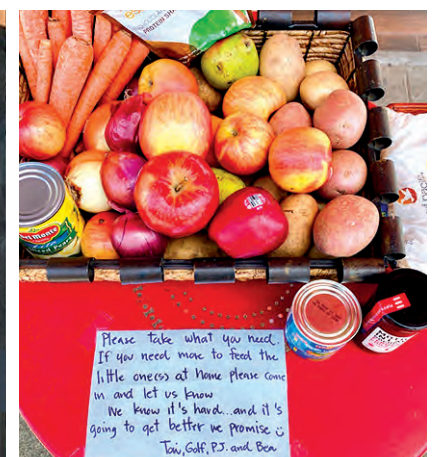 PROTEIN SHA
del Monte
Please take what you need.
If you need more to feed the
little one(s) at home please come
in and let us know
We know it's hard...and it's
going to get better we promise
Tai, Golf, P.J. and Bea